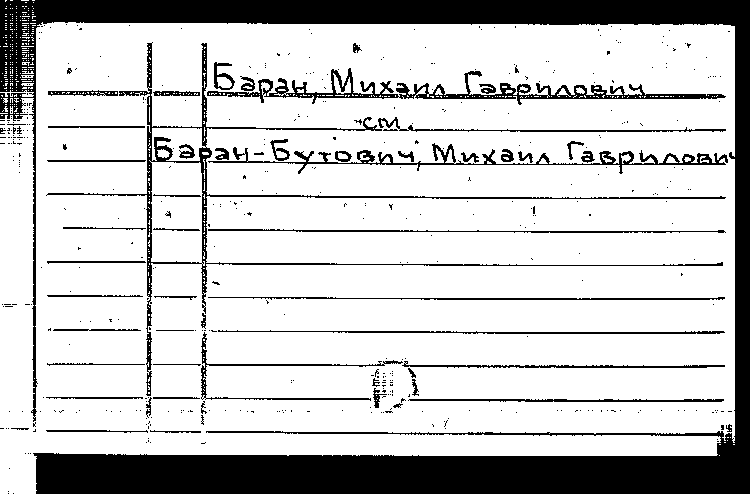 Баран, Михаил Гаврилович
см.
Баран-Бутович, Михаил Гаврилович